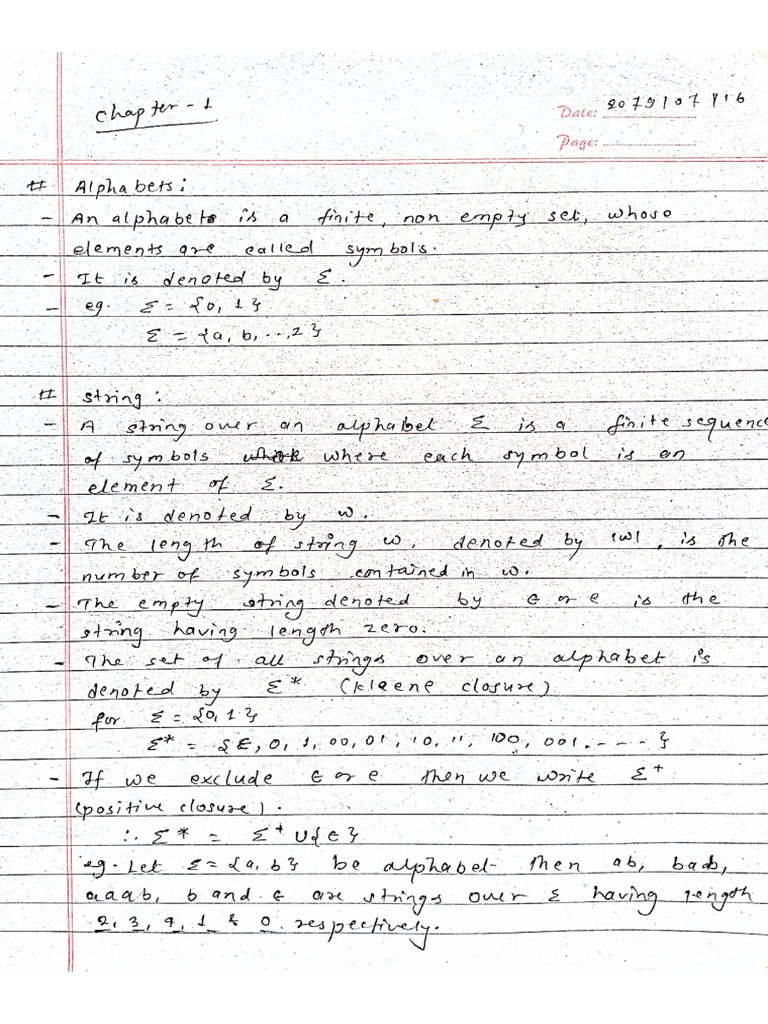 Chapter - 1
Date: 2079/07/16
Page:
# Alphabets:
- An alphabet is a finite, non empty set, whose
elements are called symbols.
- It is denoted by Σ.
- eg. Σ = {0, 1}
Σ = {a, b, ..., z}
# String:
- A string over an alphabet Σ is a finite sequence
of symbols where each symbol is an
element of Σ.
- It is denoted by w.
- The length of string w, denoted by |w|, is the
number of symbols contained in w.
- The empty string denoted by ϵ or e is the
string having length zero.
- The set of all strings over an alphabet is
denoted by Σ* (kleene closure)
for Σ = {0, 1}
Σ* = {ϵ, 0, 1, 00, 01, 10, 11, 100, 001.----}
- If we exclude ϵ or e then we write Σ⁺
(positive closure).
∴ Σ* = Σ⁺ ∪ {ϵ}
eg. Let Σ = {a, b} be alphabet then ab, bab,
aaab, b and ϵ are strings over Σ having length
2, 3, 4, 1 & 0. respectively.